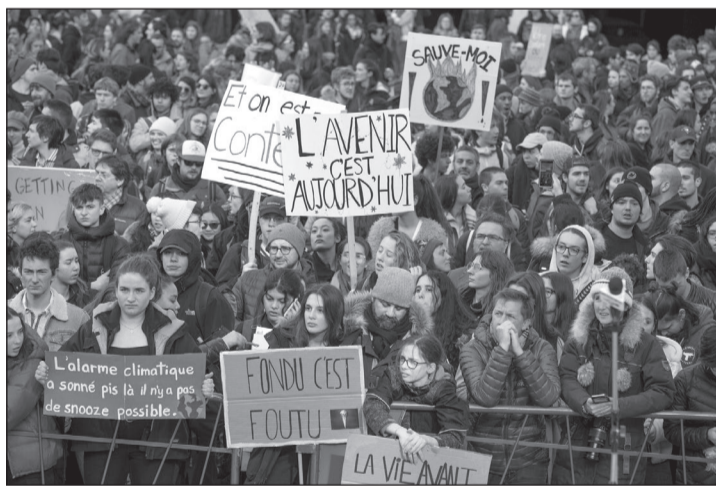 SAUVE-MOI
!
Et on est
L'AVENIR
C'EST
AUJOURD'HUI
GETTING
L'alarme climatique
a sonné pis là il n'y a pas
de snooze possible.
FONDU C'EST
FOUTU
LA VIE AVANT